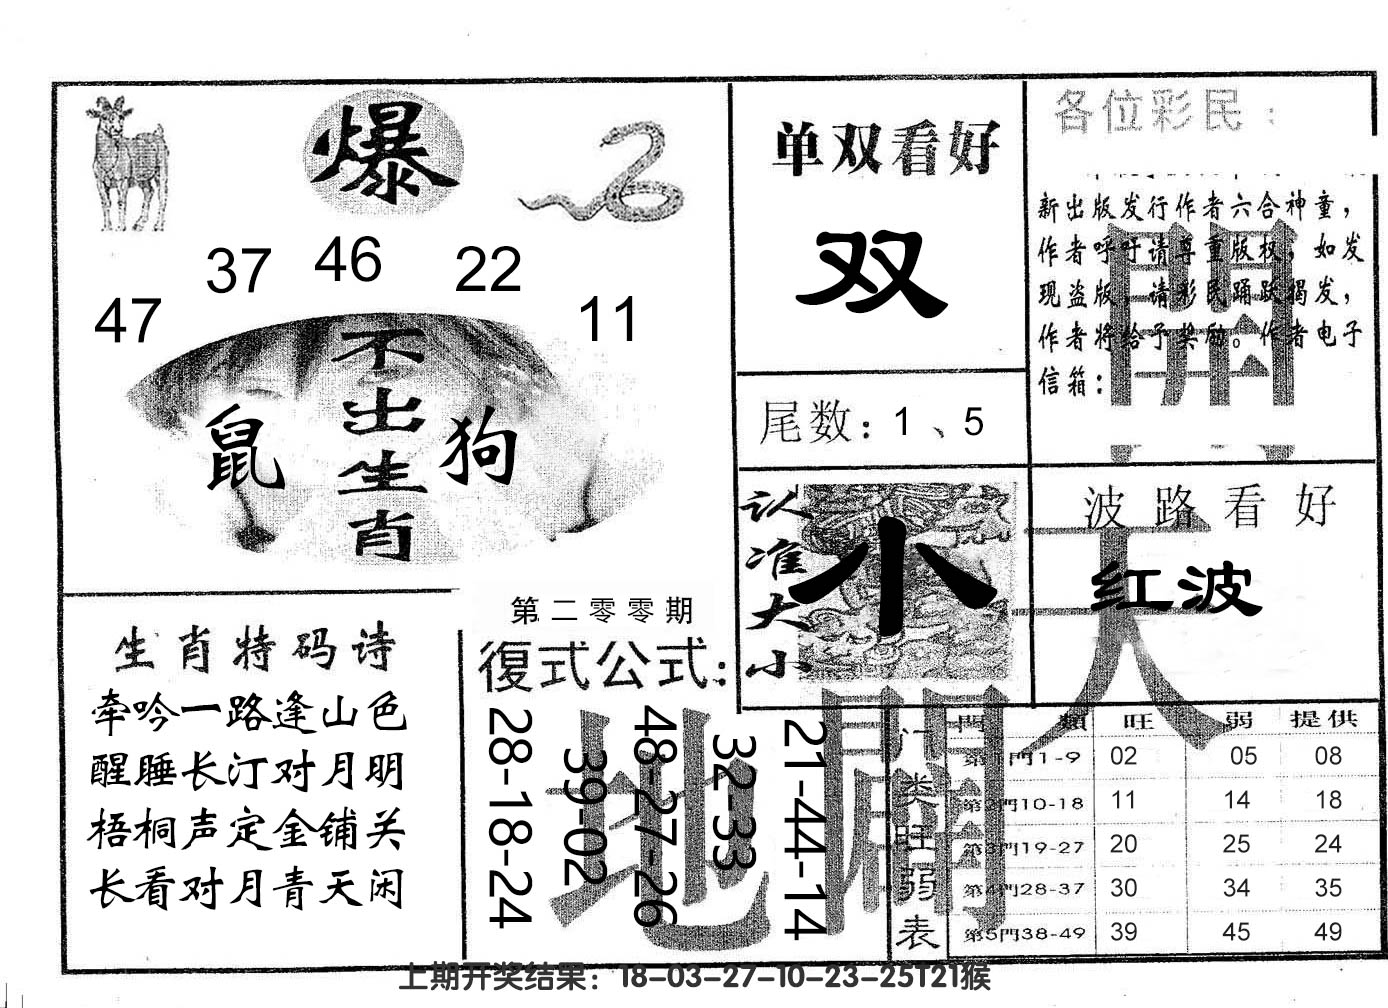 爆
47
37
46
22
11
不出生肖
鼠
狗
单双看好
双
尾数：1、5
各位彩民：
新出版发行作者六合神童，
作者呼吁请尊重版权，如发
现盗版，请彩民踊跃揭发，
作者将给予奖励。作者电子
信箱：
開
认准大小
小
波路看好
红波
天
生肖特码诗
牵吟一路逢山色
醒睡长汀对月明
梧桐声定金铺关
长看对月青天闲
第二零零期
復式公式：
28-18-24
39-02
48-27-26
32-33
21-44-14
地
門類 旺 弱 提供
门类旺弱表
第1門1-9 02 05 08
第2門10-18 11 14 18
第3門19-27 20 25 24
第4門28-37 30 34 35
第5門38-49 39 45 49
上期开奖结果：18-03-27-10-23-25T21猴